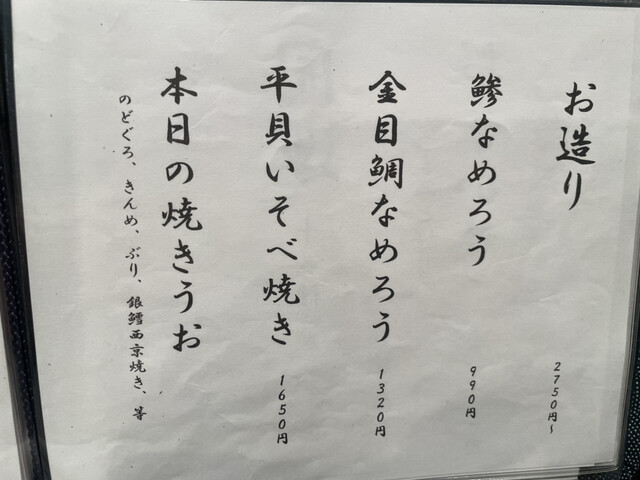 お造り 2750円~
鯵なめろう 990円
金目鯛なめろう 1320円
平貝いそべ焼き 1650円
本日の焼きうお
のどぐろ、きんめ、ぶり、銀鱈西京焼き、等